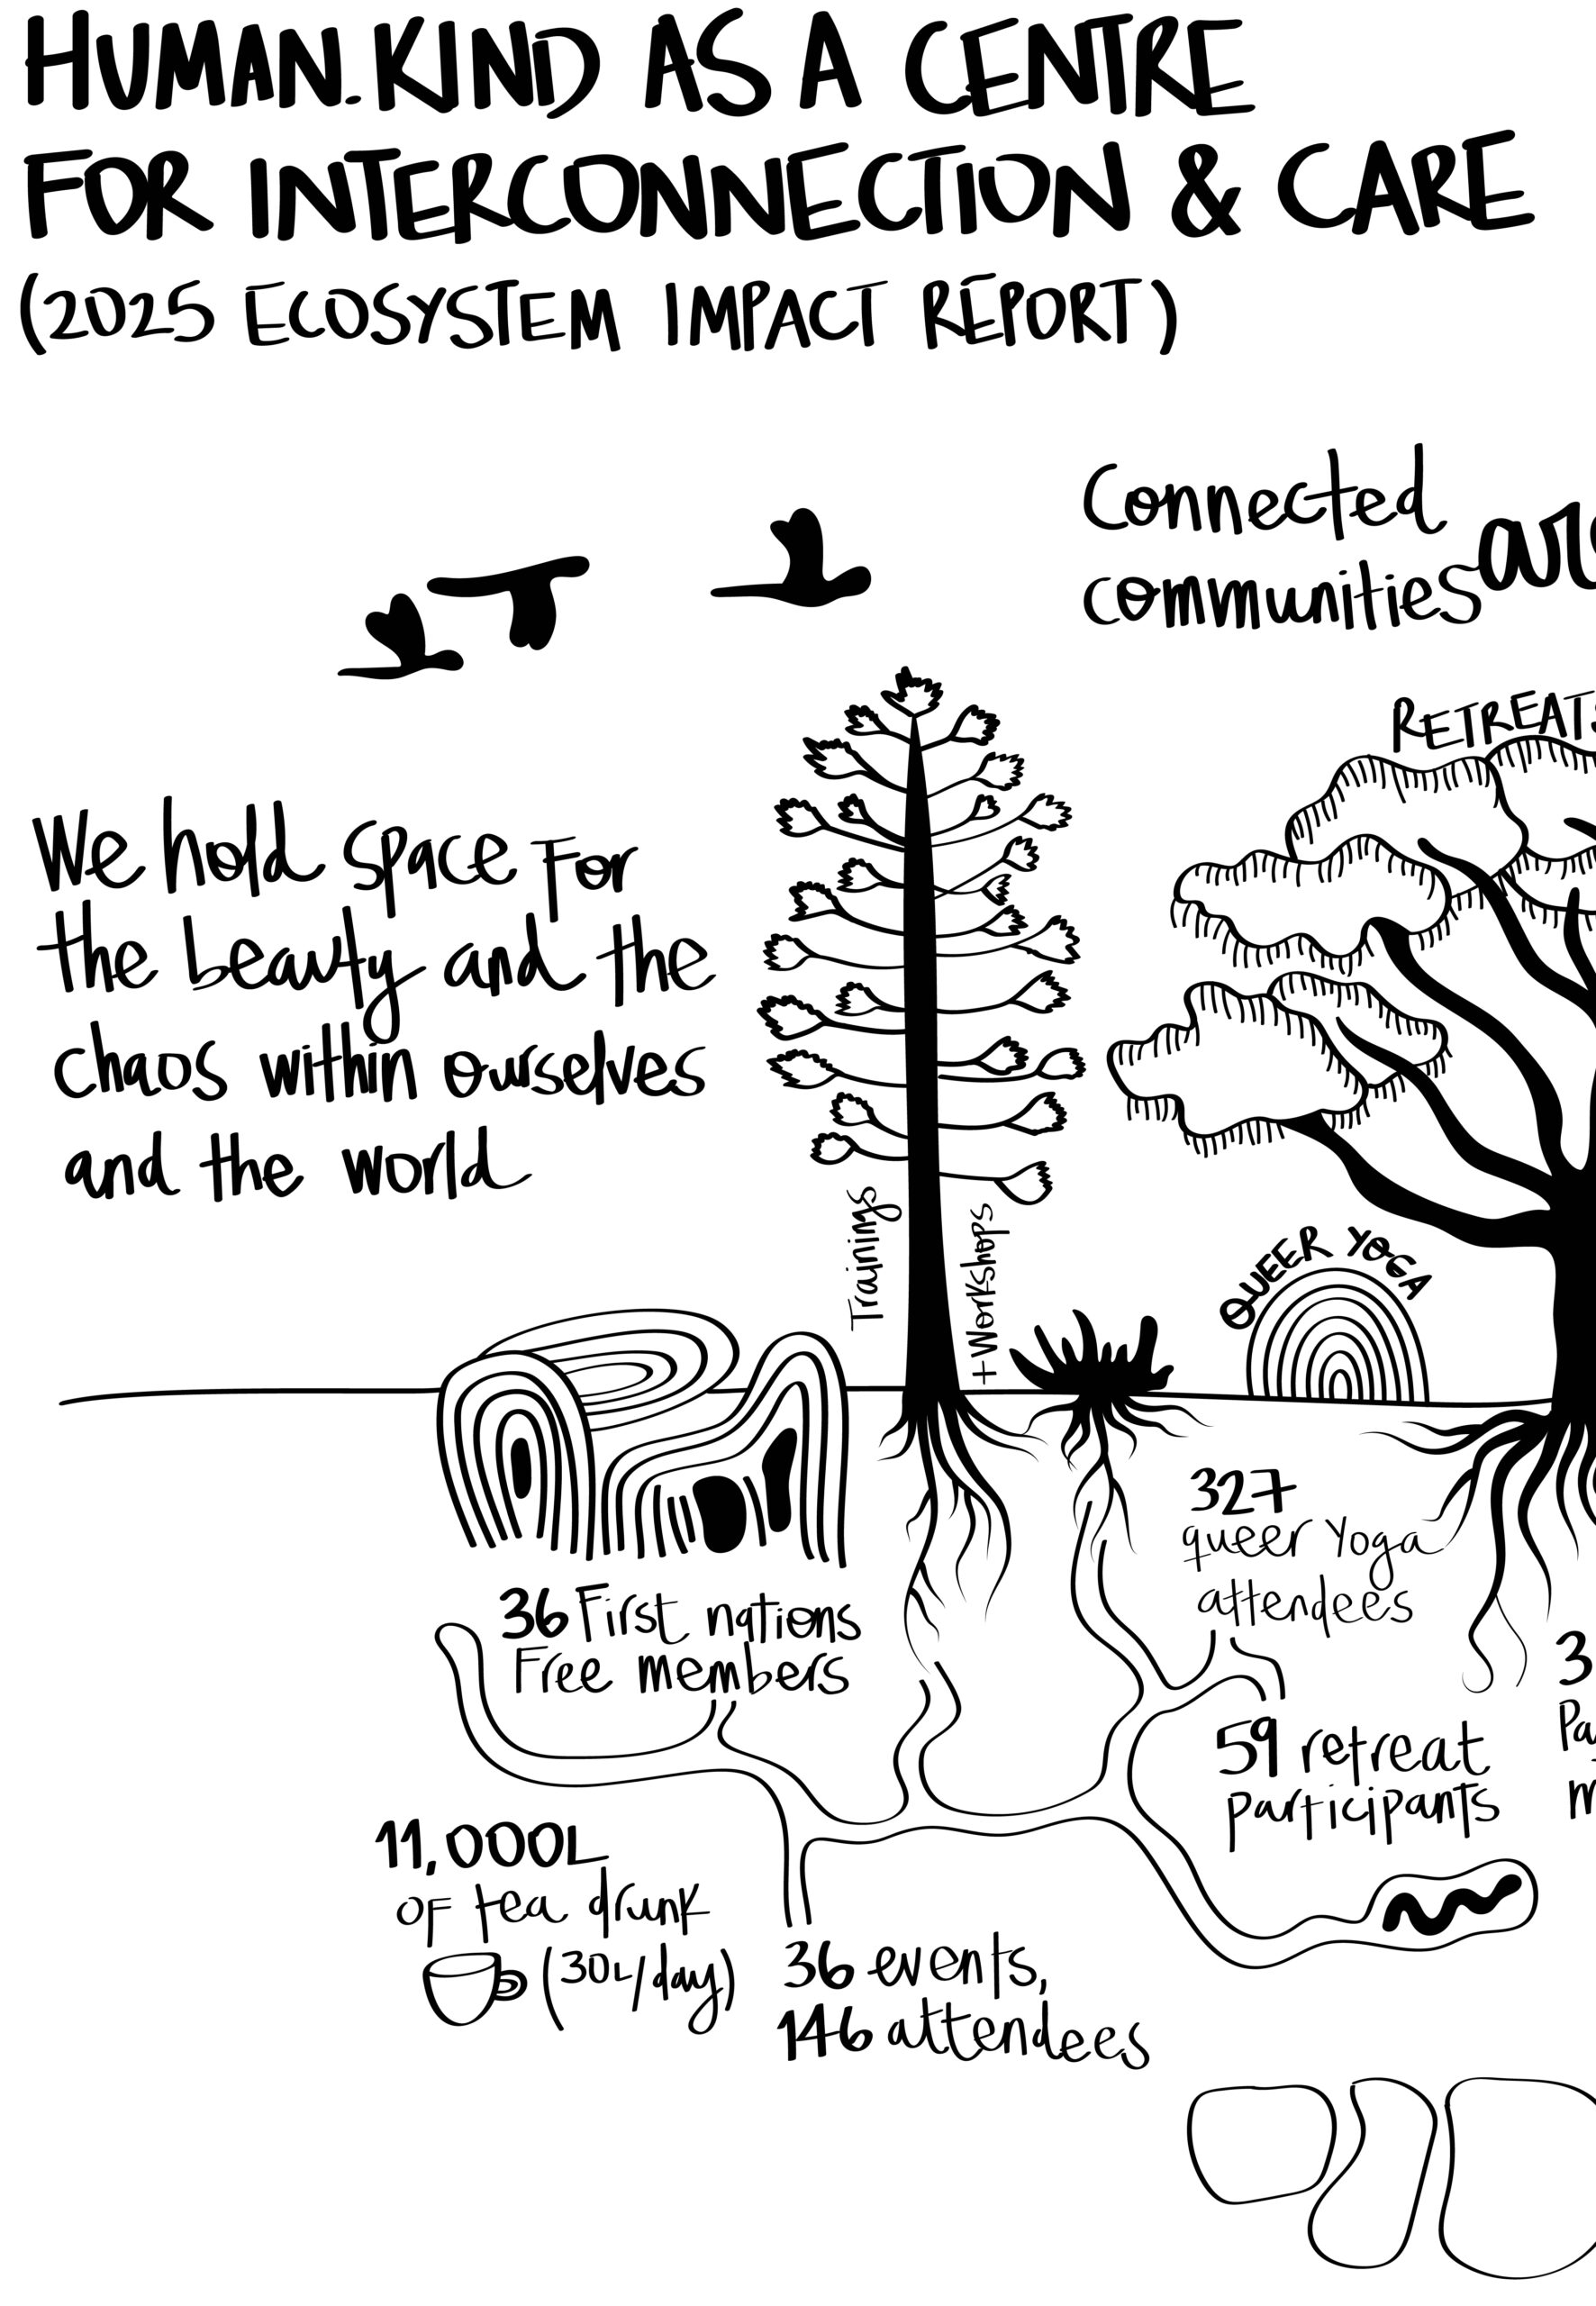 HUMAN.KIND AS A CENTRE
FOR INTERCONNECTION & CARE
(2025 ECOSYSTEM IMPACT REPORT)
Connected
communities
RETREATS
We hold space for
the beauty and the
chaos within ourselves
and the world
Training
+ Workshops
QUEER YOGA
327
queer Yoga
attendees
36 First nations
Free members
59 retreat
participants
11,000L
of tea drunk
(30L/day)
36 events,
146 attendees